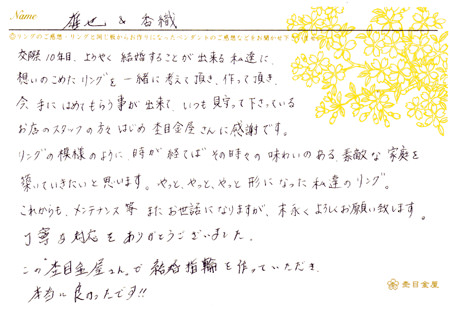 Name 雄也 & 香織
◎リングのご感想・リングと同じ板からお作りになったペンダントのご感想などをお聞かせ下さい
交際10年目、ようやく結婚することが出来る私達に、
想いのこめたリングを一緒に考えて頂き、作って頂き、
今、手にはめてもらう事が出来て、いつも見守って下さっている
お店のスタッフの方々はじめ杢目金屋さんに感謝です。
リングの模様のように、時が経てばその時々の味わいのある、素敵な家庭を
築いていきたいと思います。やっと、やっと、やっと形になった私達のリング。
これからも、メンテナンス等またお世話になりますが、末永くよろしくお願い致します。
丁寧な対応をありがとうございました。
この"杢目金屋さん"で結婚指輪を作っていただき、
本当に良かったです!!
杢目金屋